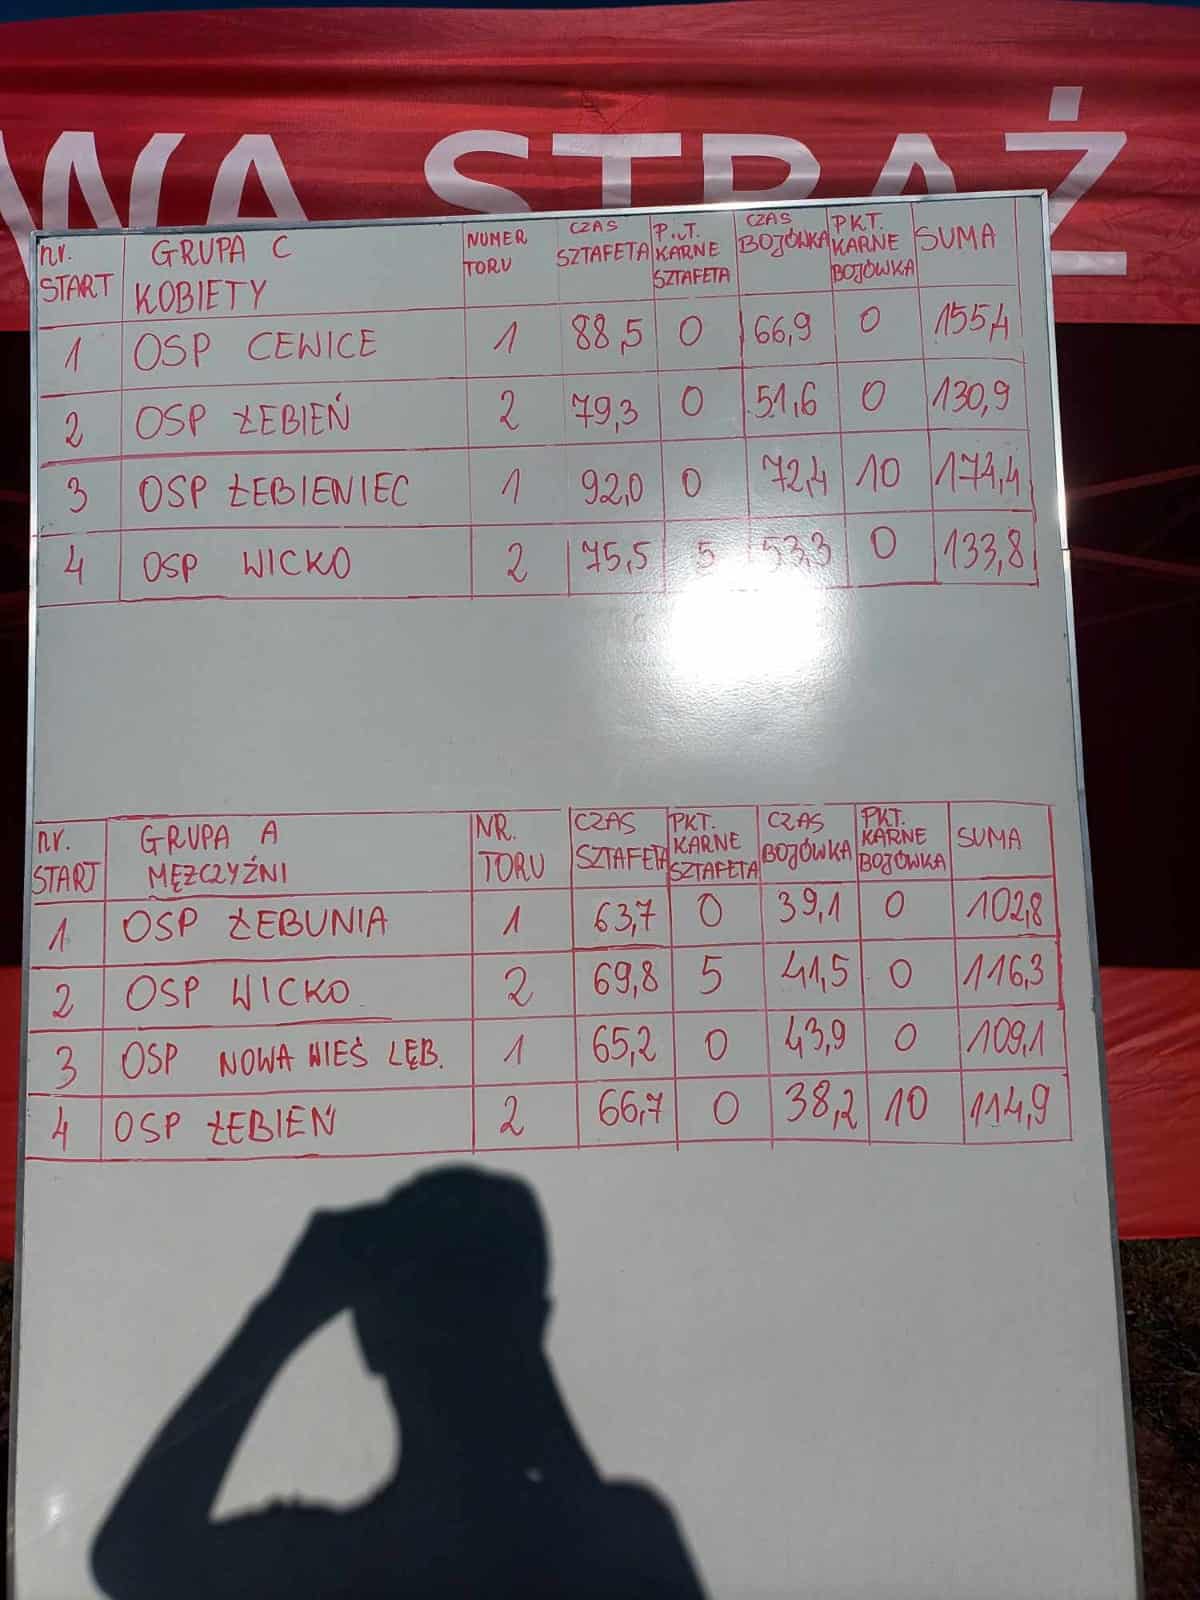 WA STRAŻ
nr. START GRUPA C KOBIETY NUMER TORU CZAS SZTAFETA PKT. KARNE SZTAFETA CZAS BOJÓWKA PKT. KARNE BOJÓWKA SUMA
1 OSP CEWICE 1 88,5 0 66,9 0 155,4
2 OSP ŁEBIEŃ 2 79,3 0 51,6 0 130,9
3 OSP ŁEBIENIEC 1 92,0 0 72,4 10 174,4
4 OSP WICKO 2 75,5 5 53,3 0 133,8
nr. START GRUPA A MĘZCZYŹNI NR. TORU CZAS SZTAFETA PKT. KARNE SZTAFETA CZAS BOJÓWKA PKT. KARNE BOJÓWKA SUMA
1 OSP ŁEBUNIA 1 63,7 0 39,1 0 102,8
2 OSP WICKO 2 69,8 5 41,5 0 116,3
3 OSP NOWA WIEŚ LĘB. 1 65,2 0 43,9 0 109,1
4 OSP ŁEBIEŃ 2 66,7 0 38,2 10 114,9